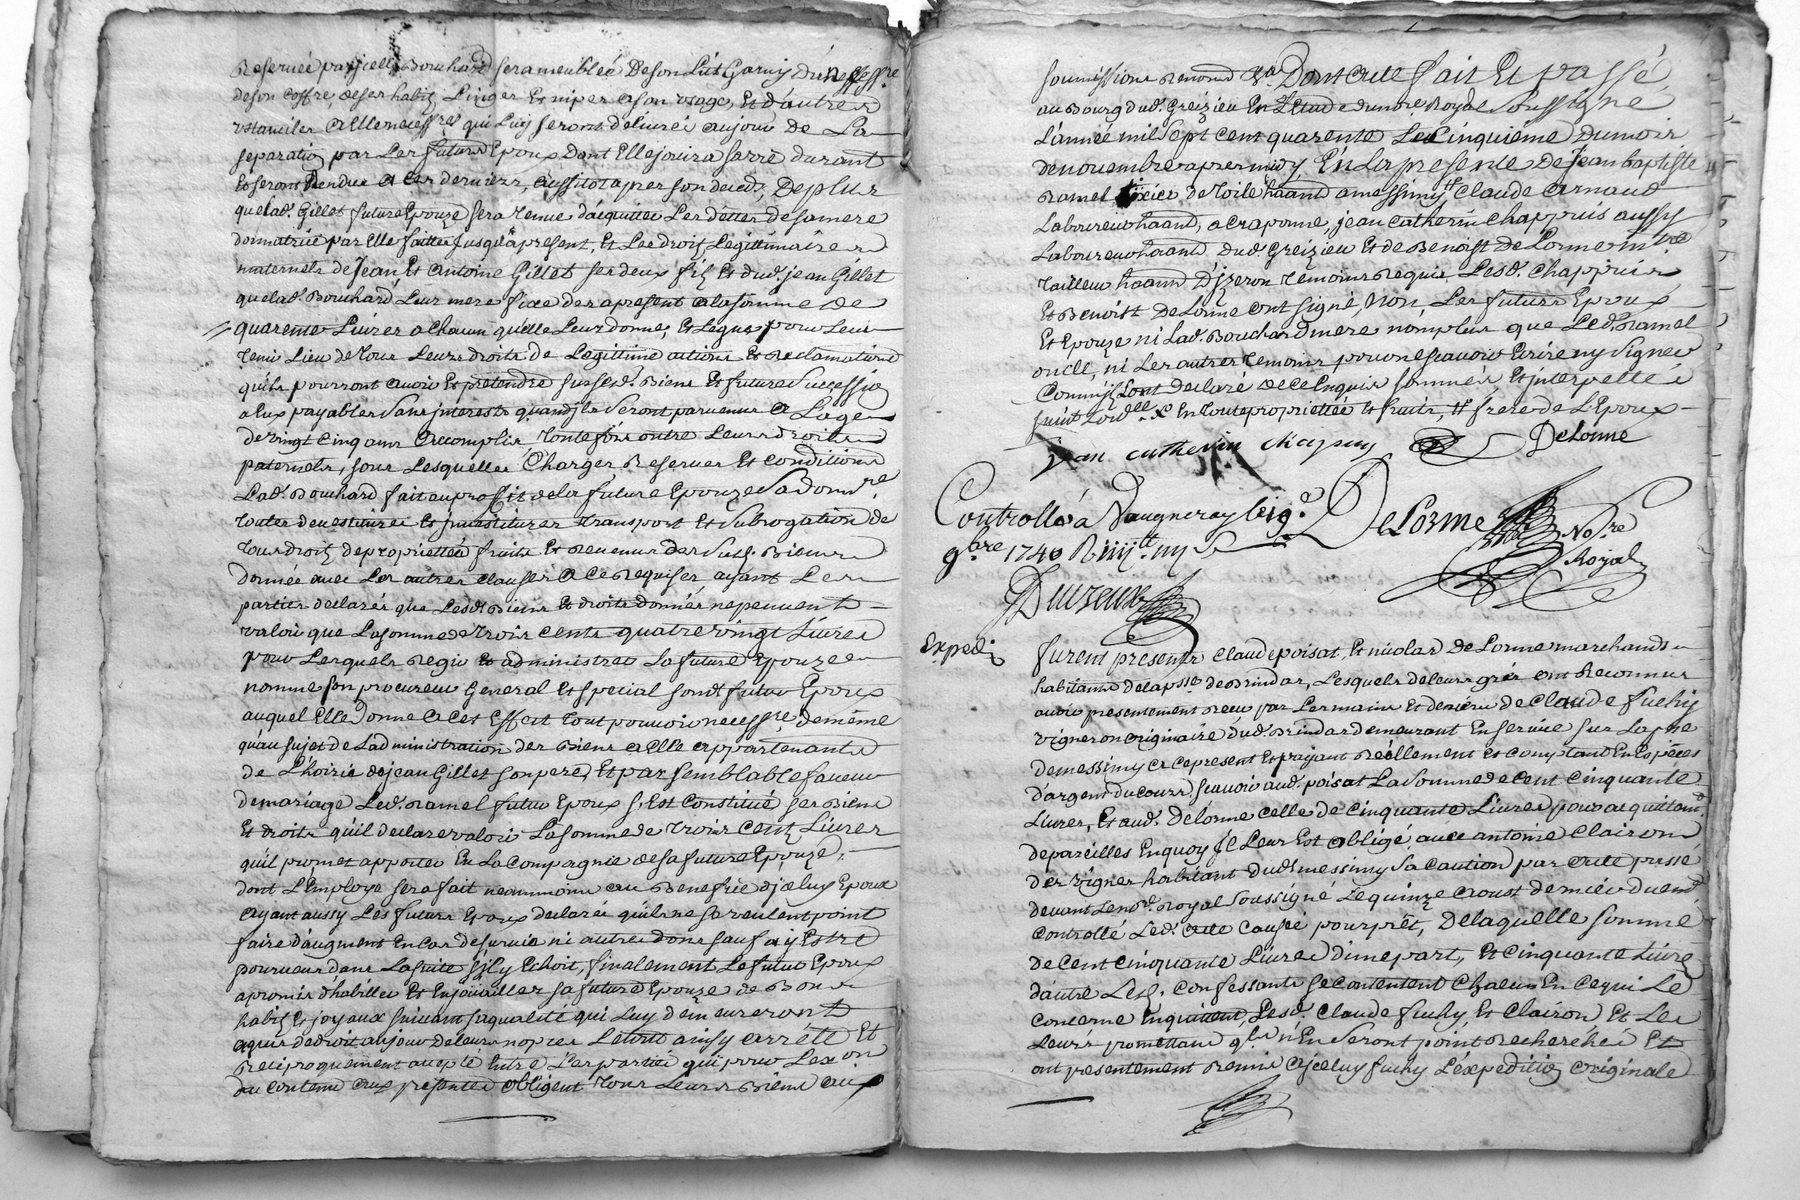 Reservée par icelle Bouchard sera meublée De son Lit Garny du necessre
de son coffre, de ses habits Linges Et nipes a son usage, Et d'autres
ustanciles a elle necessres qui Luy seront delivrés au jour de La
separation par Les futurs Epoux Dont Elle jouira sa vie durant
Et seront Rendus a ces derniers, aussitot apres son deceds, De plus
que lad. Gillet future Epouze sera tenue d'aquitter Les dettes de sa mere
donnatrice par Elle faittes jusqu'a present, Et Les droits Legittimaires
maternels de Jean, Et Antoine Gillet ses deux fils Et dud. jean Gillet
que lad. Bouchard Leur mere fixe des a present a la somme de
quarente Livres a chacun qu'elle Leur donne, Et Legue pour Leur
tenir Lieu de tous Leurs droits de Legittime actions Et reclamations
qu'ils pourront avoir Et pretendre sur sesd. Biens Et future Succession
a Eux payables Sans interests quand ils Seront parvenus a L'age
de vingt cinq ans accomplis, toutefois outre Leurs droits
paternels, sous Lesquelles Charges Reserves Et conditions
Lad. Bouchard fait au proffit de la future Epouze Sa donnre
toutes devestitures Et jnvestitures transport Et Subrogation de
tous droits de proprietté fruits Et revenus des Susd. Biens
donnés avec Les autres clauses a ce Requises ayant Les
parties declarés que Lesd. Biens Et droits donnés ne peuvent
valoir que La somme de trois cents quatre vingt Livres
pour Lesquels Regir Et administrer La future Epouze
nomme son procureur General Et special sond. futur Epoux
auquel Elle Donne a cet Effet tout pouvoir necessre, de même
qu'au sujet de L'administration des Biens a Elle appartenants
de L'hoirie de jean Gillet son pere, Et par semblable faveur
de mariage Led. Ramel futur Epoux s'Est Constitué ses Biens
Et droits qu'il declare valoir La somme de trois cents Livres
qu'il promet apporter En La Compagnie de sa future Epouze,
dont L'Employe sera fait neanmoins au Benefice d'jceluy Epoux
ayant aussy Les futurs Epoux declaré qu'ils ne se veulent point
faire d'augment En cas de survie ni autre dons sauf a y Estre
pourveus dans La suite s'il y Echoit, finalement Le futur Epoux
a promis d'habiller Et Enjoüailler sa future Epouze de Bons
habits Et joyaux suivant sa qualité qui Luy demeureront
aquis de droit au jour de Leurs nopces Le tout ainsy arrêté Et
Reciproquement accepté Entre Les parties qui pour L'exon
du contenu aux presentes obligent tous Leurs Biens aux
soumissions renonons &a Dont acte fait Et passé
au Bourg dud. Greizieu En L'Etude du nore Royal Soussigné
L'année mil Sept cent quarente Le Cinquiéme du mois
de novembre apres midy, En La presence de Jean baptiste
Ramel tixier de toile habant a messimy tt Claude Arnaud
Laboureur habant, a Craponne, jean Catherin Chappuis aussy
Laboureur habant dud. Greizieu Et de Benoist de Lorme mtre
tailleur habant D'jzeron temoins Requis Lesd. Chappuis
Et Benoist de Lorme ont signé, Non, Les futurs Epoux
Et Epouze ni Lad. Bouchard mere nomplus que Led. Ramel
oncle, ni Les autres temoins pour ne sçavoir Ecrire ny Signer
Comm'ils ont declaré de ce Enquis sommés Et jnterpellés
suivt L'ordce x En toute proprietté Et fruits, tt frere de L'Epoux
jean catherin chapuy Delorme
Controllé a Vaugneray le 19e
9bre 1740 R
De Lorme Nore
Royal
Expedié
furent presents Claude poisat, Et nicolas De Lorme marchands
habitants de la psse de Brindas, Lesquels de Leurs gréz ont Reconnus
avoir presentement recu par Les mains Et deniers de Claude fuchy
vigneron originaire dud. Brindas demeurant En service sur La psse
de messimy a ce present Et payant reéllement Et comptant En Espèces
d'argent du cours, sçavoir aud. poisat La Somme de Cent Cinquante
Livres, Et aud. Delorme celle de Cinquante Livres pour acquitemt
de pareilles En quoy jl Leur Est obligé, avec antoine Clairon
des vignes habitant dud. messimy Sa Caution par acte passé
devant Le nore Royal Soussigné Le quinze aoust dernier duemt
Controllé Led. acte Causée pour prêt, De laquelle somme
De Cent Cinquante Livres d'une part, Et Cinquante Livres
d'autre Lesd. Confessants Se Contentent Chacun En Ce qui Le
Concerne En quittent Lesd. Claude fuchy, Et Clairon Et Les
Leurs promettant qu'ils n'En Seront point Recherchés Et
ont presentement Remis a jceluy fuchy L'expedition originale